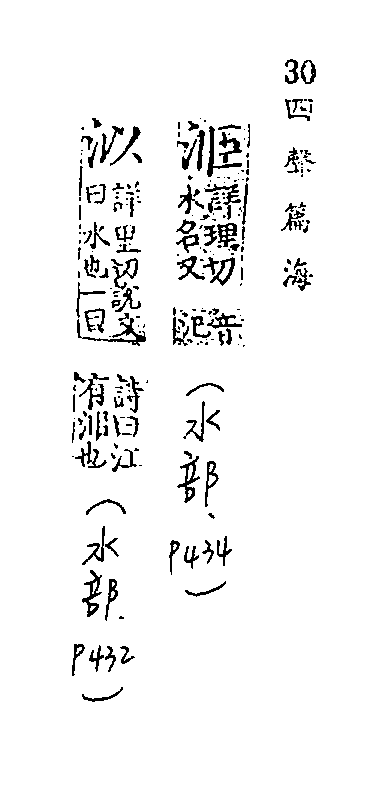 30 四聲篇海
洍
詳理切
水名又
音
汜
(水部、P434)
詳里切說文
曰水也一曰
詩曰江
有洍也
(水部.P432)